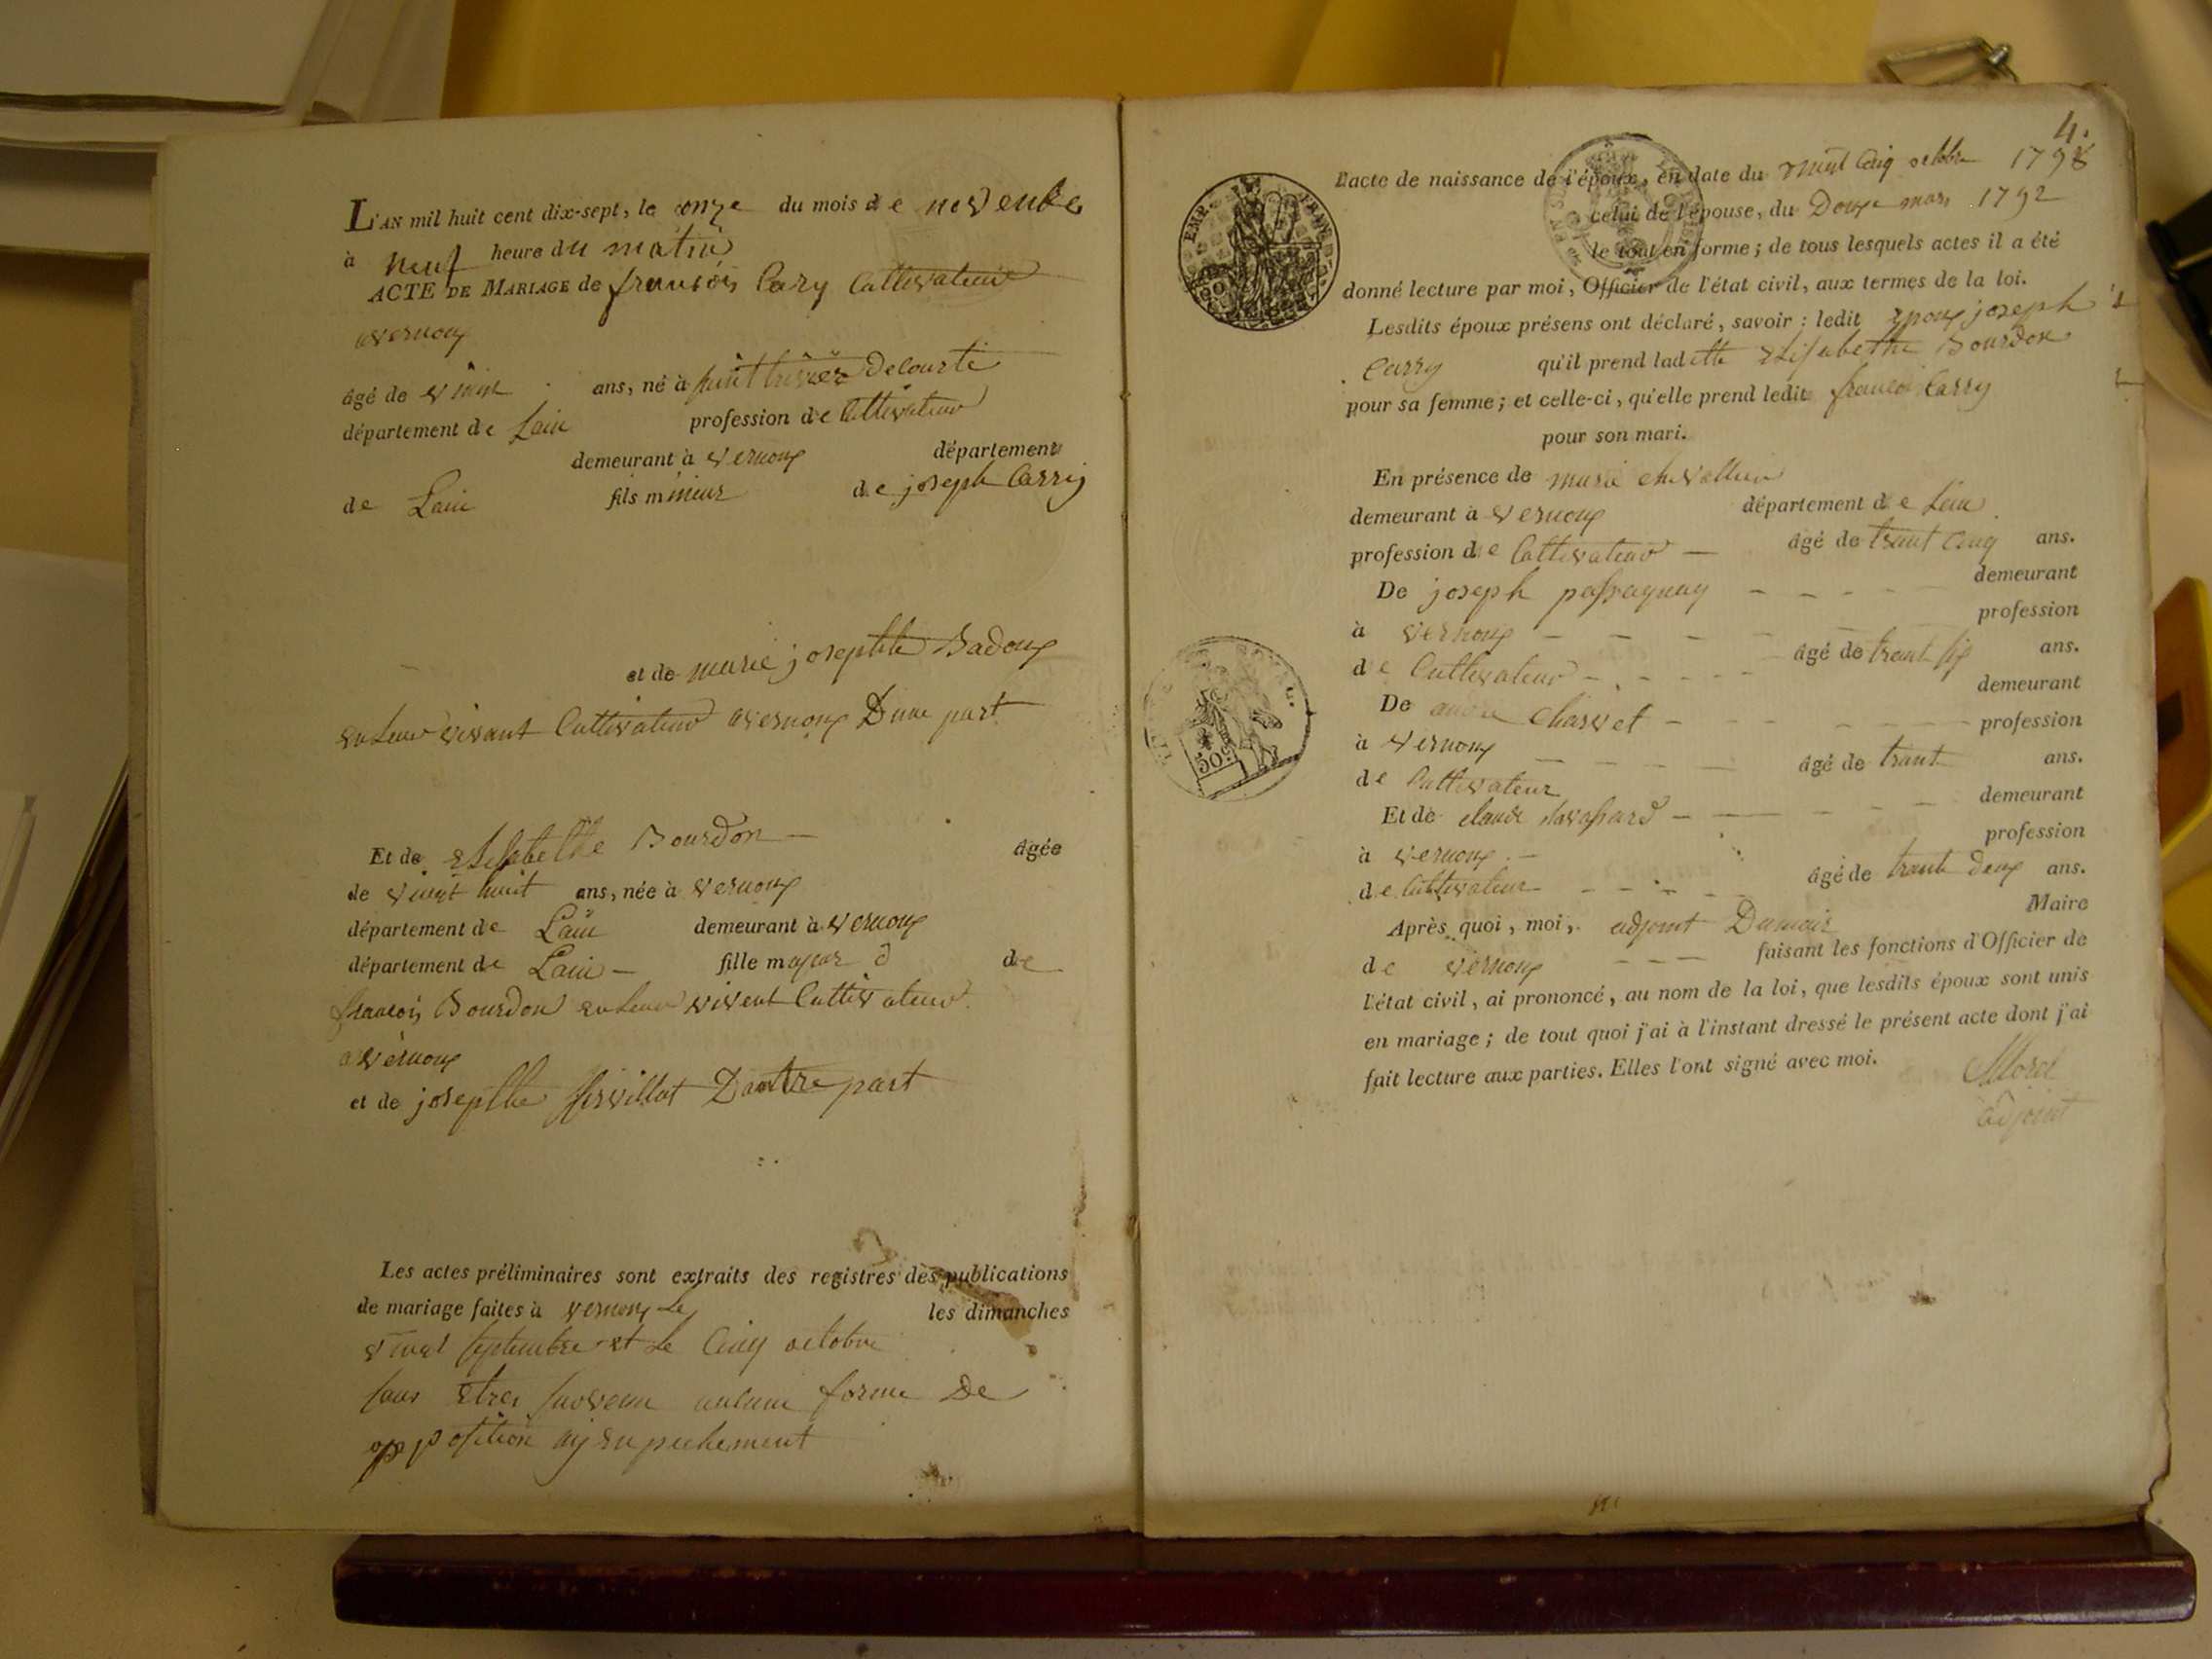 L'AN mil huit cent dix-sept, le onze du mois de novenbe
à neuf heure du matin
ACTE DE MARIAGE de francois Cary Cultivateur
avernoux
âgé de vint ans, né à saint trivier Decourte
département de Lain profession de Cultivateur
demeurant à vernoux département
de Lain fils mineur de joseph Carry
et de marie josephte Badoux
vivant Cultivateur avernoux Dune part
Et de Elisabethe Bourdon âgée
de vingt huit ans, née à vernoux
département de Lain demeurant à vernoux
département de Lain fille majeur d de
francois Bourdon vivent Cultivateur
avernoux
et de josephte servillat Dautre part
Les actes préliminaires sont extraits des registres des publications
de mariage faites à vernoux Le les dimanches
septembre et Le Cinq octobre
sans etres survenu aucune forme De
opposition ny enpechement
4.
L'acte de naissance de l'époux, en date du vint Cinq octobre 1798
celui de l'épouse, du Douze mars 1792
le tout en forme; de tous lesquels actes il a été
donné lecture par moi, Officier de l'état civil, aux termes de la loi.
Lesdits époux présens ont déclaré, savoir : ledit epoux joseph
Carry qu'il prend ladette Elisabethe Bourdon
pour sa femme; et celle-ci, qu'elle prend ledit francoi Carry
pour son mari.
En présence de marie chevallier
demeurant à vernoux département de Lain
profession de Cultivateur âgé de trant Cinq ans.
De joseph passaquay demeurant
à vernoux profession
de Cultivateur âgé de trant six ans.
De andre Charvet demeurant
à vernoux profession
de Cultivateur âgé de trant ans.
Et de claude demeurant
à vernoux profession
de Cultivateur âgé de trante deux ans.
Après quoi, moi, adjoint Dumaire Maire
de vernoux faisant les fonctions d'Officier de
l'état civil, ai prononcé, au nom de la loi, que lesdits époux sont unis
en mariage; de tout quoi j'ai à l'instant dressé le présent acte dont j'ai
fait lecture aux parties. Elles l'ont signé avec moi.
Morel
adjoint
EMP. FRAN.
50 c.